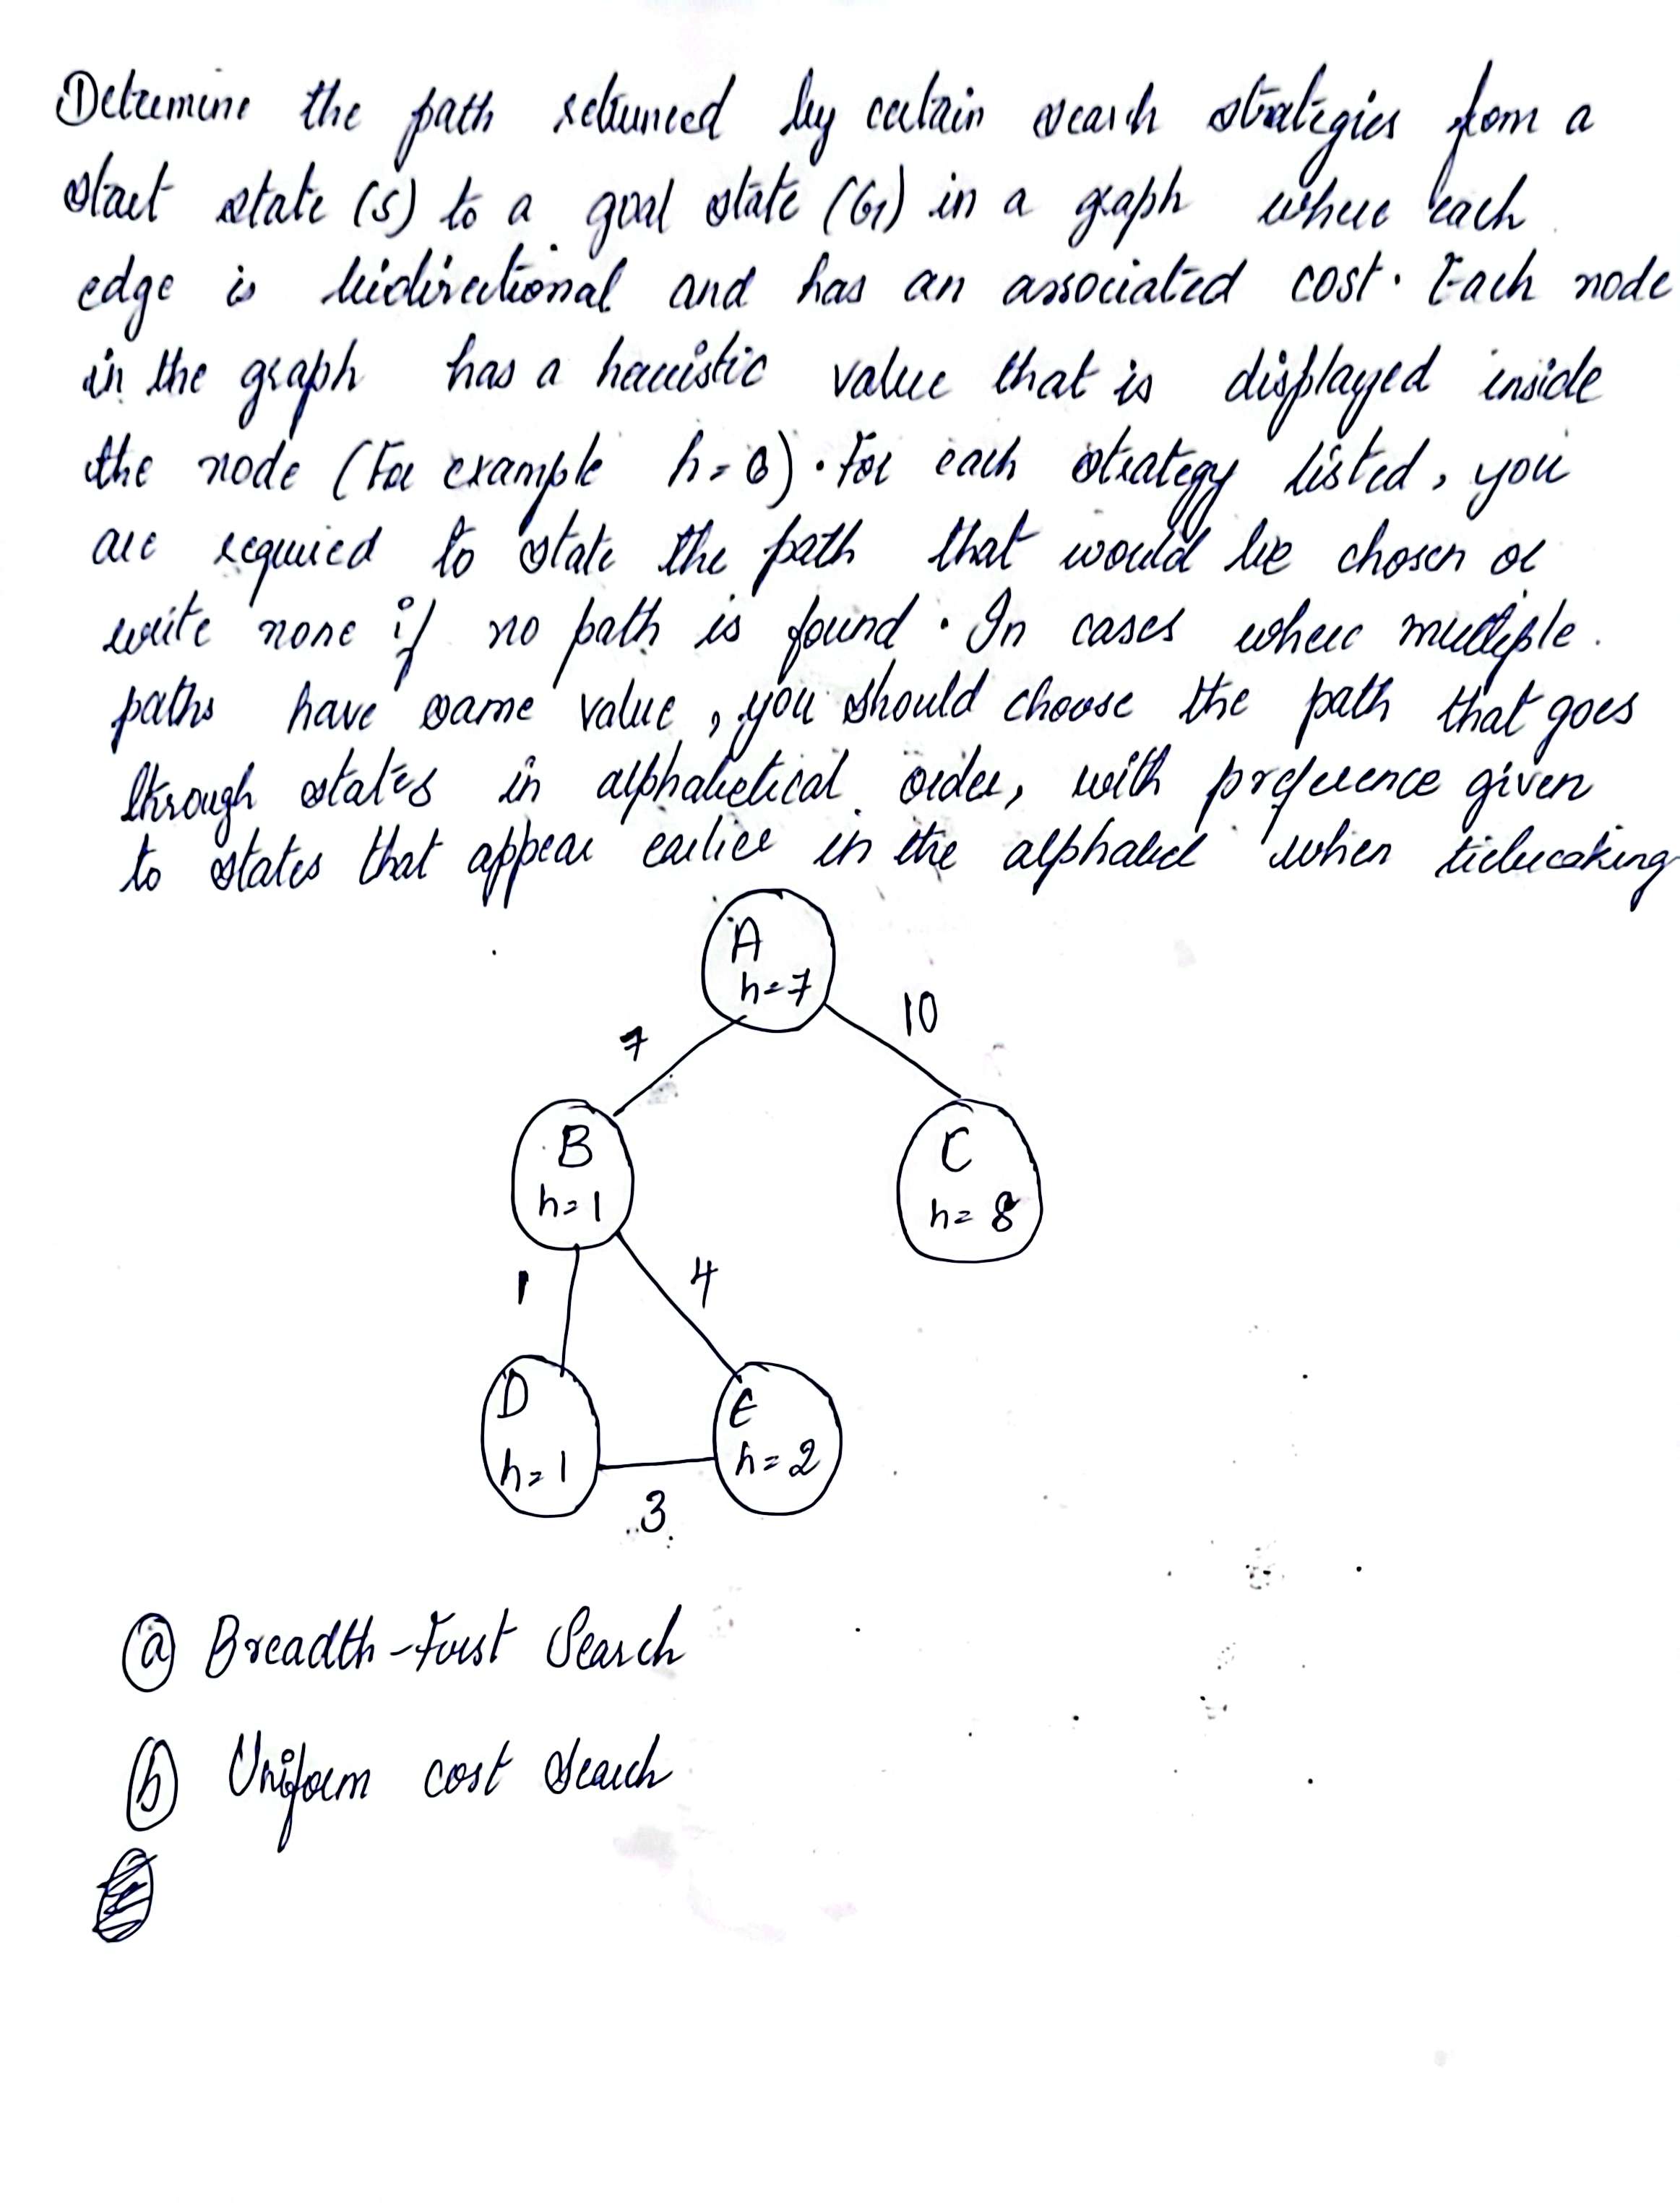 Determine the path returned by certain search strategies from a
start state (S) to a goal state (G) in a graph where each
edge is bidirectional and has an associated cost. Each node
in the graph has a heuristic value that is displayed inside
the node (For example h=6). For each strategy listed, you
are required to state the path that would be chosen or
write none if no path is found. In cases where multiple
paths have same value, you should choose the path that goes
through states in alphabetical order, with preference given
to states that appear earlier in the alphabet when tiebreaking
A
h=7
7
10
B
h=1
C
h=8
1
4
D
h=1
E
h=2
3
(a) Breadth-First Search
(b) Uniform cost search